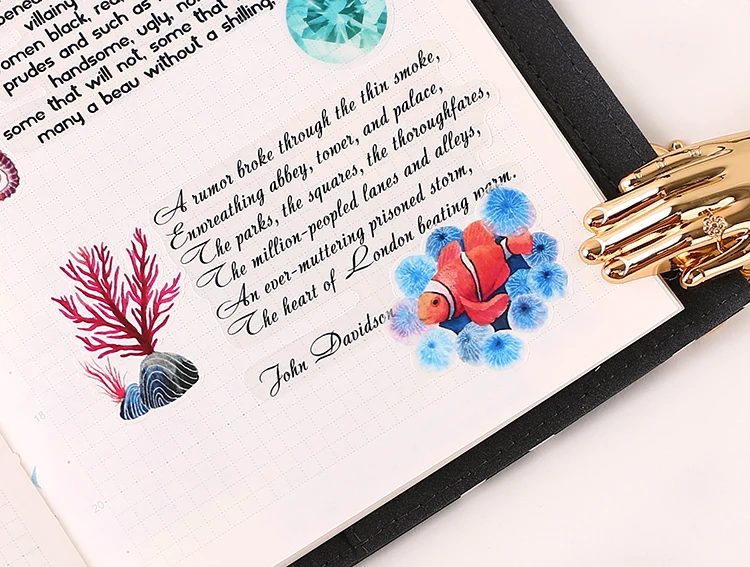 villainy
omen black, rea
prudes and such as
handsome, ugly, no
some that will not, some that
many a beau without a shilling,
A rumor broke through the thin smoke,
Enwreathing abbey, tower, and palace,
The parks, the squares, the thoroughfares,
The million-peopled lanes and alleys,
An ever-muttering prisoned storm,
The heart of London beating warm.
John Davidson
18
20